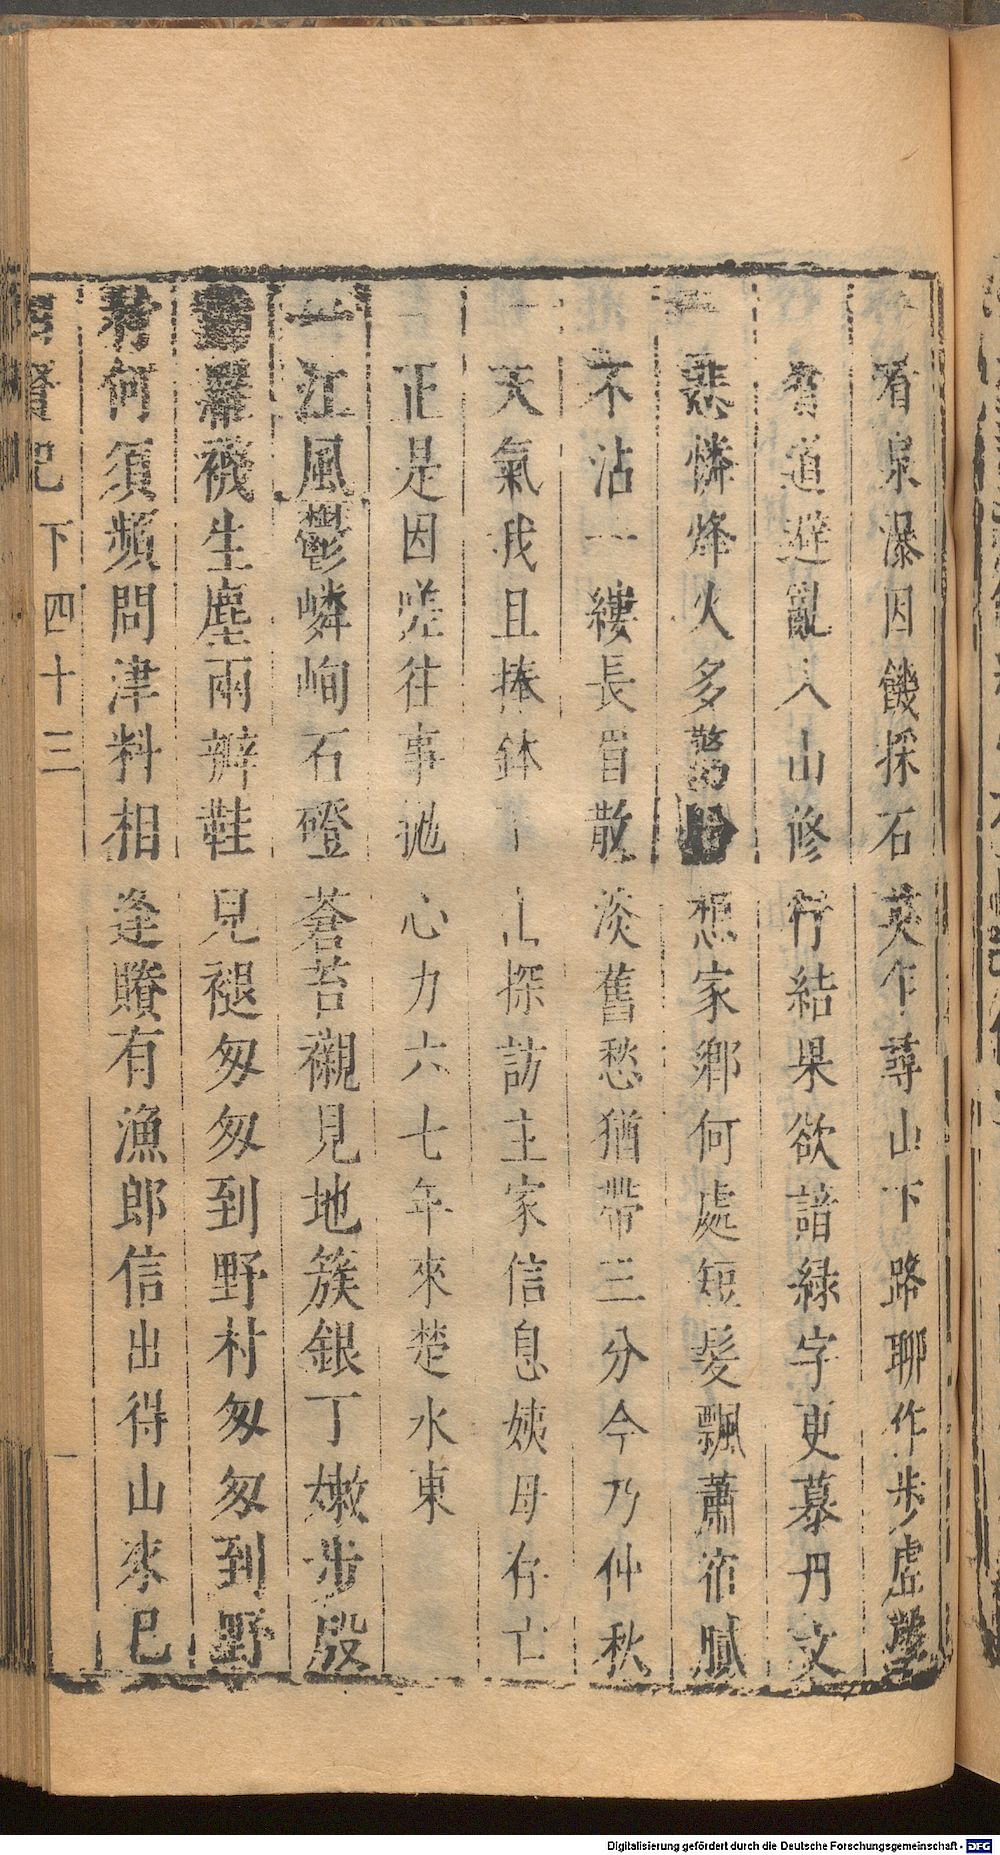 看泉瀑因饑採石英乍尋山下路聊作步虛聲
有道避亂人山修行結果欲諳綠字更慕丹文
悲憐烽火多驚想家鄉何處短髮飄蕭宿膩
不沾一縷長眉散淡舊愁猶帶三分今乃仲秋
天氣我且捧鉢下山探訪主家信息姨母存亡
正是因嗟往事拋心力六七年來楚水東
江風鬱嶙峋石磴蒼苔襯見地簇銀丁嫩步殷
羅襪生塵兩辦鞋兒褪匆匆到野村匆匆到野
村何須頻問津料相逢賸有漁郎信出得山來已
賢記 下四十三
Digitalisierung gefördert durch die Deutsche Forschungsgemeinschaft - DFG